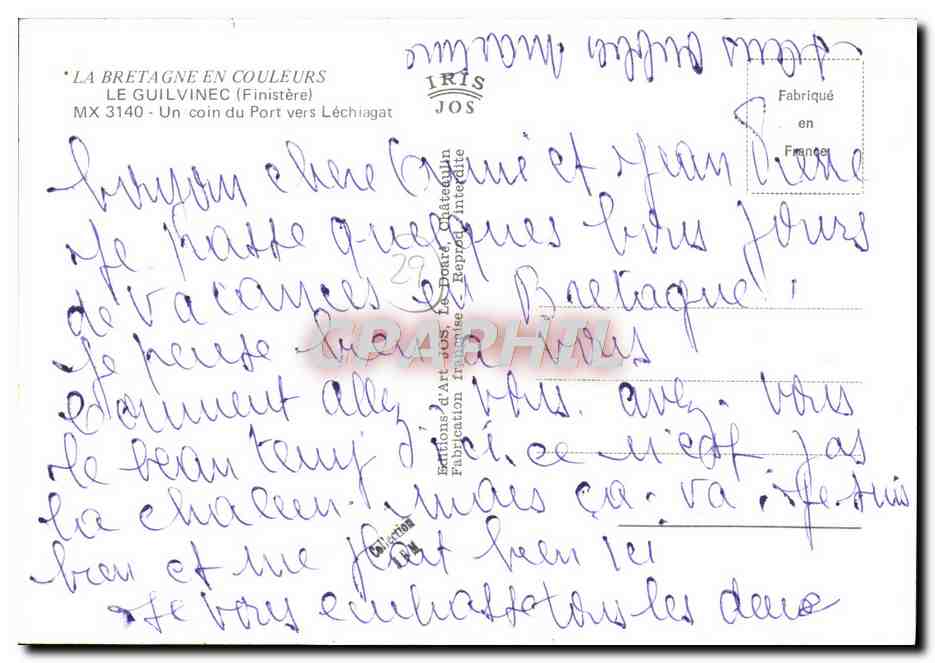 LA BRETAGNE EN COULEURS
LE GUILVINEC (Finistère)
MX 3140 - Un coin du Port vers Léchiagat
IRIS
JOS
Fabriqué
en
France
Editions d'Art JOS, Le Doaré, Châteaulin
Fabrication française - Reprod. interdite
29
CPAPHIL
Collection
chere et Jean Piere
Je passe quelques bons jours
de vacances en Bretagne
Je pense bien a vous
comment allez vous. avez-vous
le beau temp d'ici. ce n'est pas
la chaleur. mais ça va. Je suis
bien et me plait bien ici
Je vous embrasse tous les deux